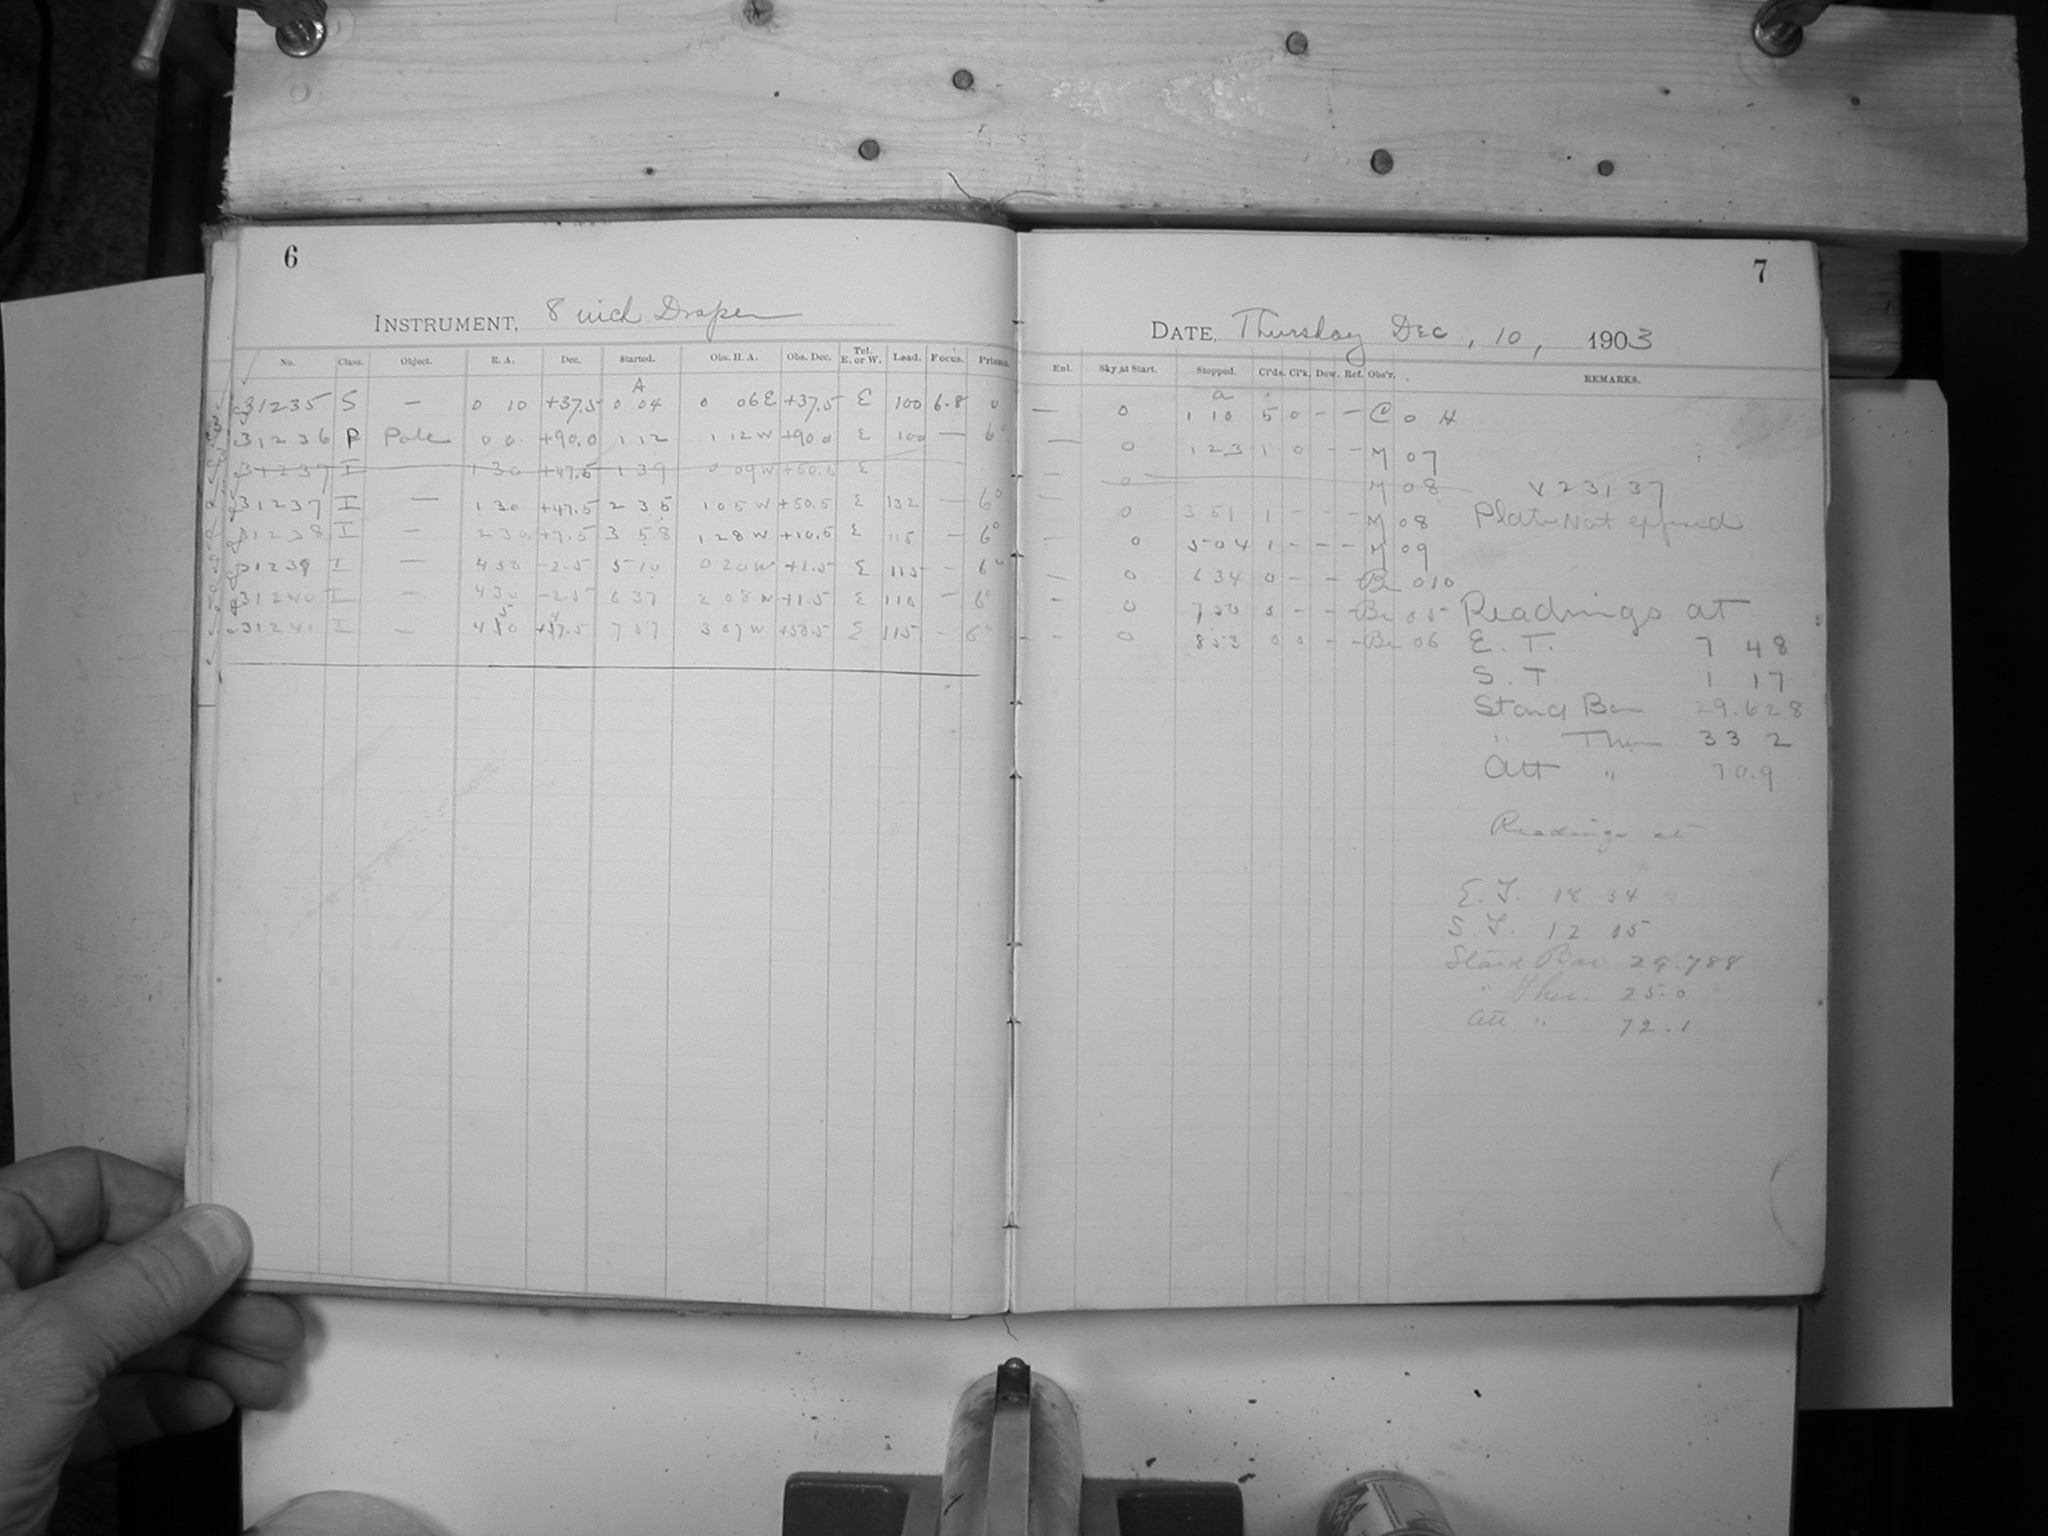 6
INSTRUMENT, 8 inch Draper
No. Class. Object. R. A. Dec. Started. Obs. H. A. Obs. Dec. Tel. E. or W. Load. Focus. Prisms.
A
31235 S — 0 10 +37.5 0 04 0 06E +37.5 E 100 6.8 0
31236 P Pole 0 0 +90.0 1 12 1 12 W +90 0 E 100 — 6°
31237 I 1 30 +47.5 1 39 0 09W +50.5 E
31237 I — 1 30 +47.5 2 35 1 05 W +50.5 E 132 — 6°
31238 I — 2 30 +7.5 3 58 1 28 W +10.5 E 115 — 6°
31239 I — 4 50 -2.5 5 10 0 20 W +1.5 E 115 — 6°
31240 I — 4 30 -2.5 6 37 2 08 W +1.5 E 110 — 6°
31241 I — 4 50 7 57 3 07 W E 115 — 6°
7
DATE, Thursday Dec, 10, 1903
Enl. Sky at Start. Stopped. Cl'ds. Cl'k. Dew. Ref. Obs'r. REMARKS.
a
— 0 1 10 5 0 — — C 0 H
— 0 1 23 1 0 — — M 07
— 0 M 08 V 23137
— 0 3 51 1 — — — M 08 Plate Not exposed
— 0 5 04 1 — — — M 09
— 0 6 34 0 — — — Be 010
— 0 7 50 — — — Be 05 Readings at
— 0 8 53 0 0 — — Be 06 E. T. 7 48
S. T. 1 17
Stand Bar 29.628
" Ther 33 2
Att " 70.9
Readings at
E. T. 18 34
S. T. 12 05
Stand Bar 29.788
" Ther. 25.0
Att " 72.1